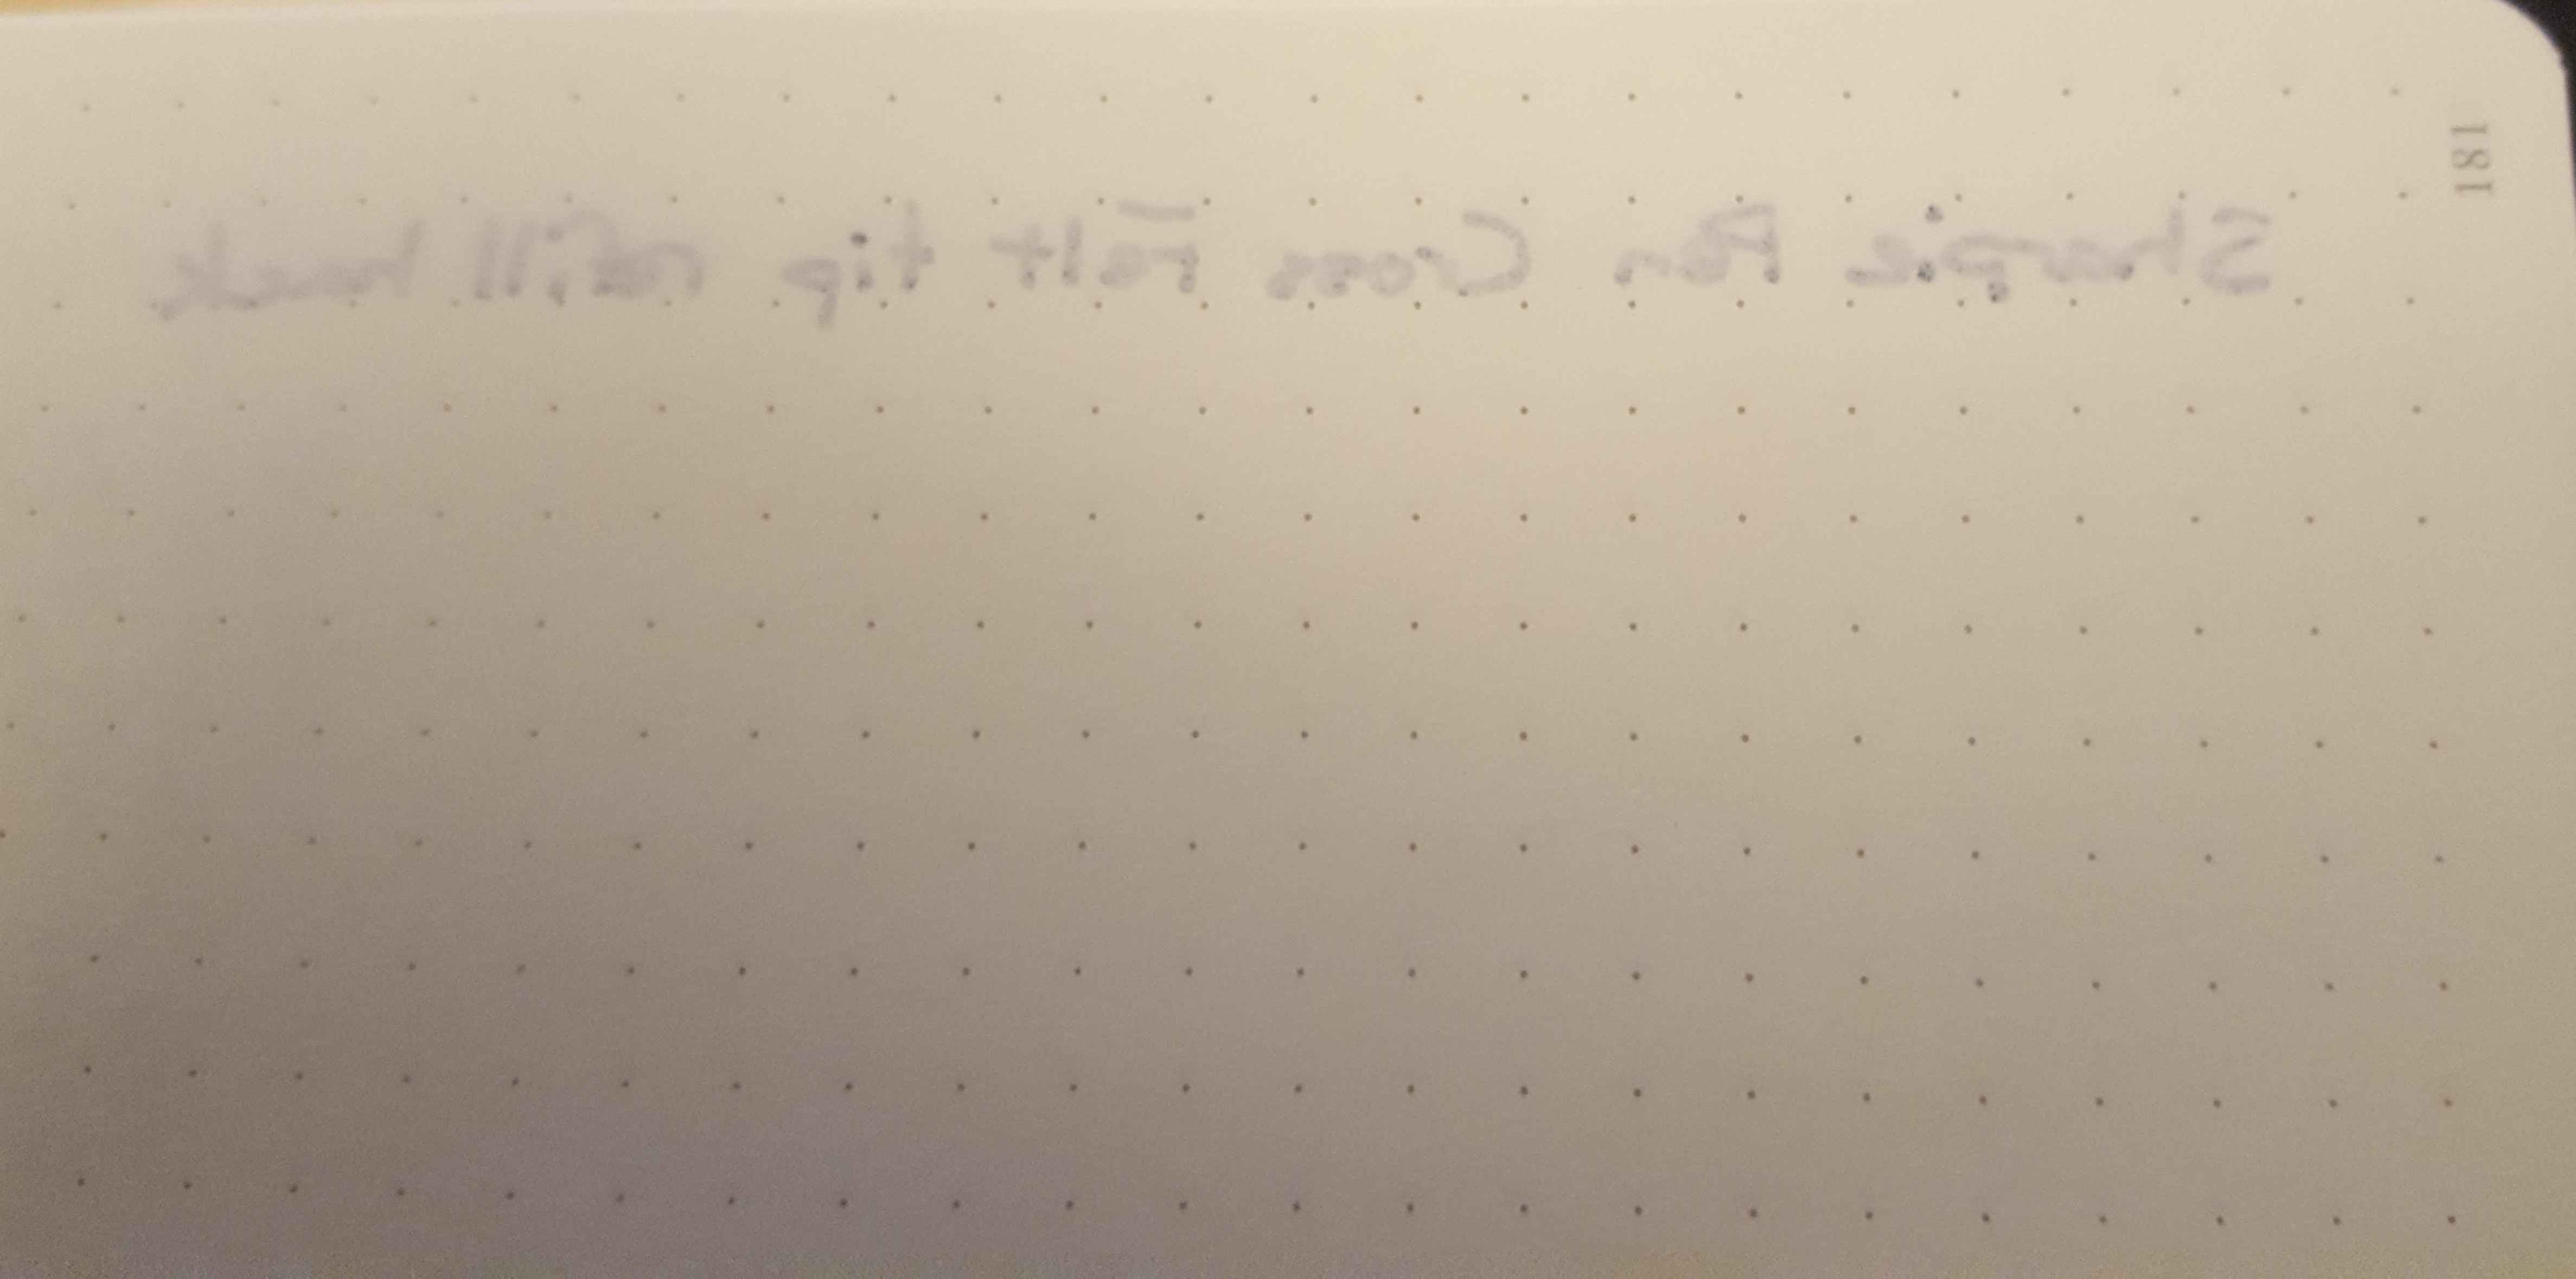 Sharpie Pen Cross Felt tip refill hack
181